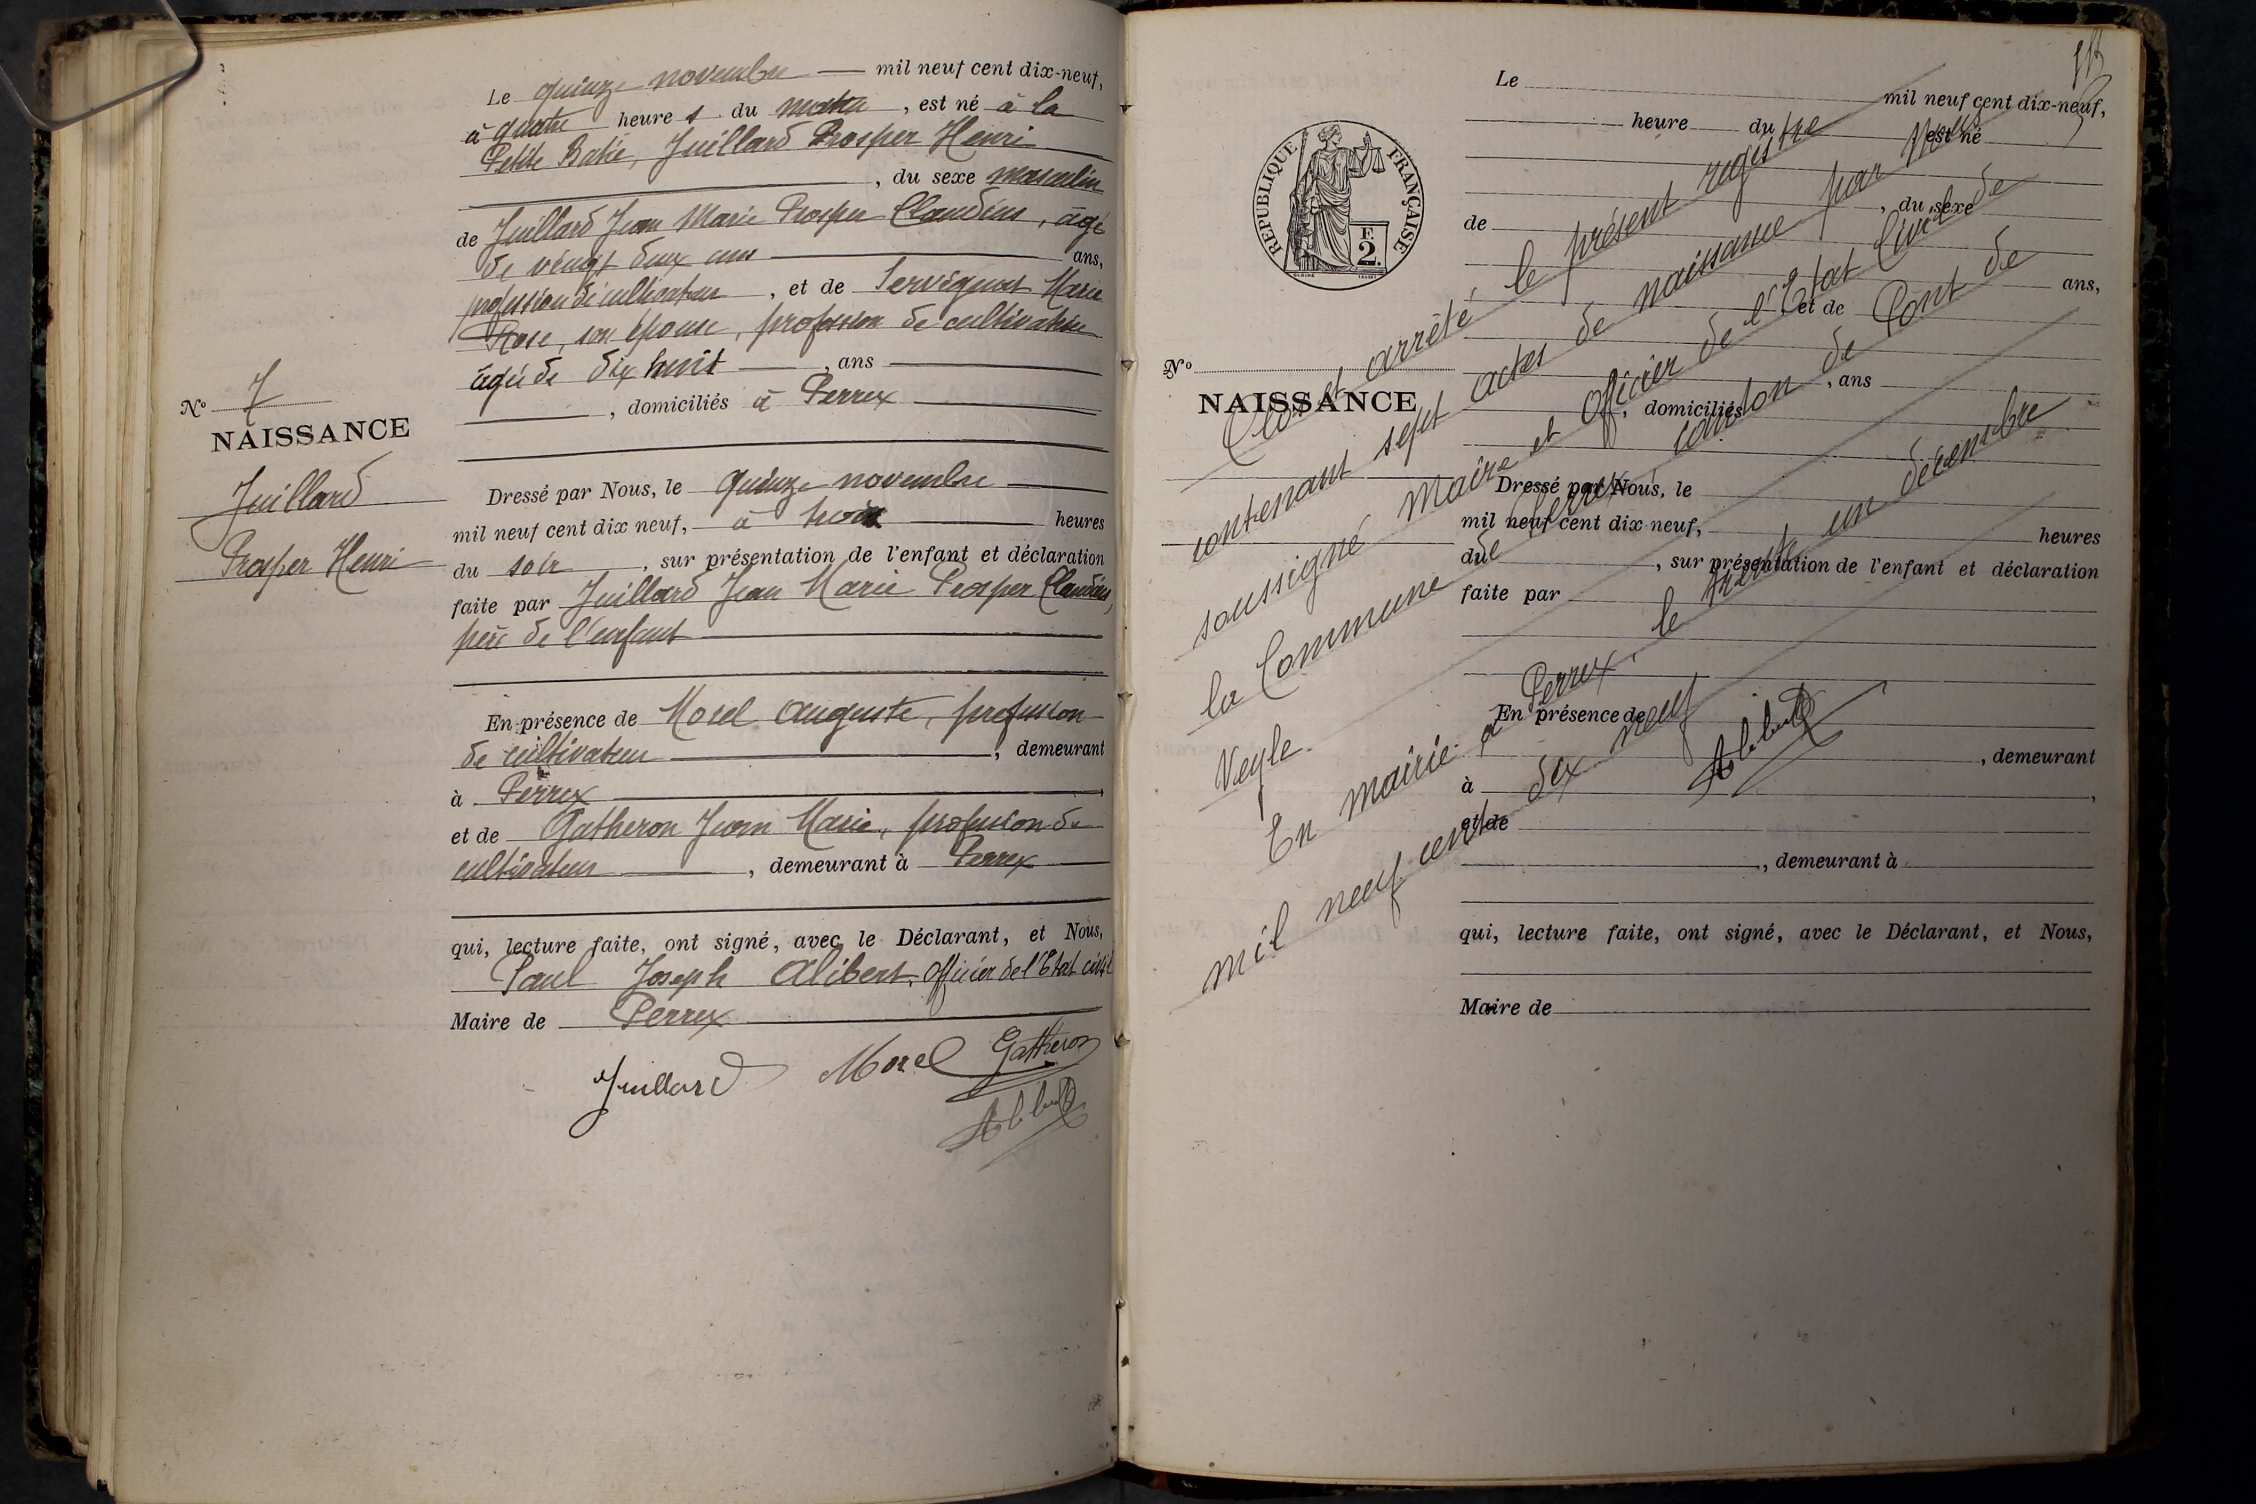 Le quinze novembre — mil neuf cent dix-neuf,
à quatre heure s du matin, est né à la
Petite Batie, Juillard Prosper Henri
, du sexe masculin
de Juillard Jean Marie Prosper Claudius, âgé
de vingt deux ans — ans,
profession de cultivateur, et de Servignat Marie
Rose, son épouse, profession de cultivatrice
âgée de dix huit —, ans
, domiciliés à Perrex
No 7
NAISSANCE
Juillard
Prosper Henri
Dressé par Nous, le quinze novembre
mil neuf cent dix neuf, à trois heures
du soir, sur présentation de l'enfant et déclaration
faite par Juillard Jean Marie Prosper Claudius,
père de l'enfant
En présence de Morel Auguste, profession
de cultivateur, demeurant
à Perrex,
et de Gatheron Jean Marie, profession de
cultivateur, demeurant à Perrex
qui, lecture faite, ont signé, avec le Déclarant, et Nous,
Paul Joseph Alibert, Officier de l'Etat civil
Maire de Perrex
Juillard Morel Gatheron
Alibert
RÉPUBLIQUE FRANÇAISE
F.
2.
Le mil neuf cent dix-neuf,
heure du est né
, du sexe
de
ans,
et de
, ans
, domiciliés
No
NAISSANCE
Dressé par Nous, le
mil neuf cent dix neuf, heures
du , sur présentation de l'enfant et déclaration
faite par
En présence de
, demeurant
à ,
et de
, demeurant à
qui, lecture faite, ont signé, avec le Déclarant, et Nous,
Maire de
Clos et arrêté le présent registre
contenant sept actes de naissance par Nous
soussigné Maire et Officier de l'Etat Civil de
la Commune de Perrex, canton de Pont de
Veyle.
En mairie à Perrex, le trente un décembre
mil neuf cent dix neuf
Alibert